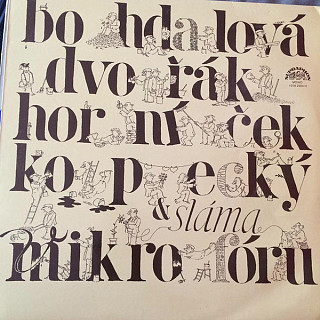 bohdalová
dvořák
horníček
kopecký
& sláma
mikrofóru